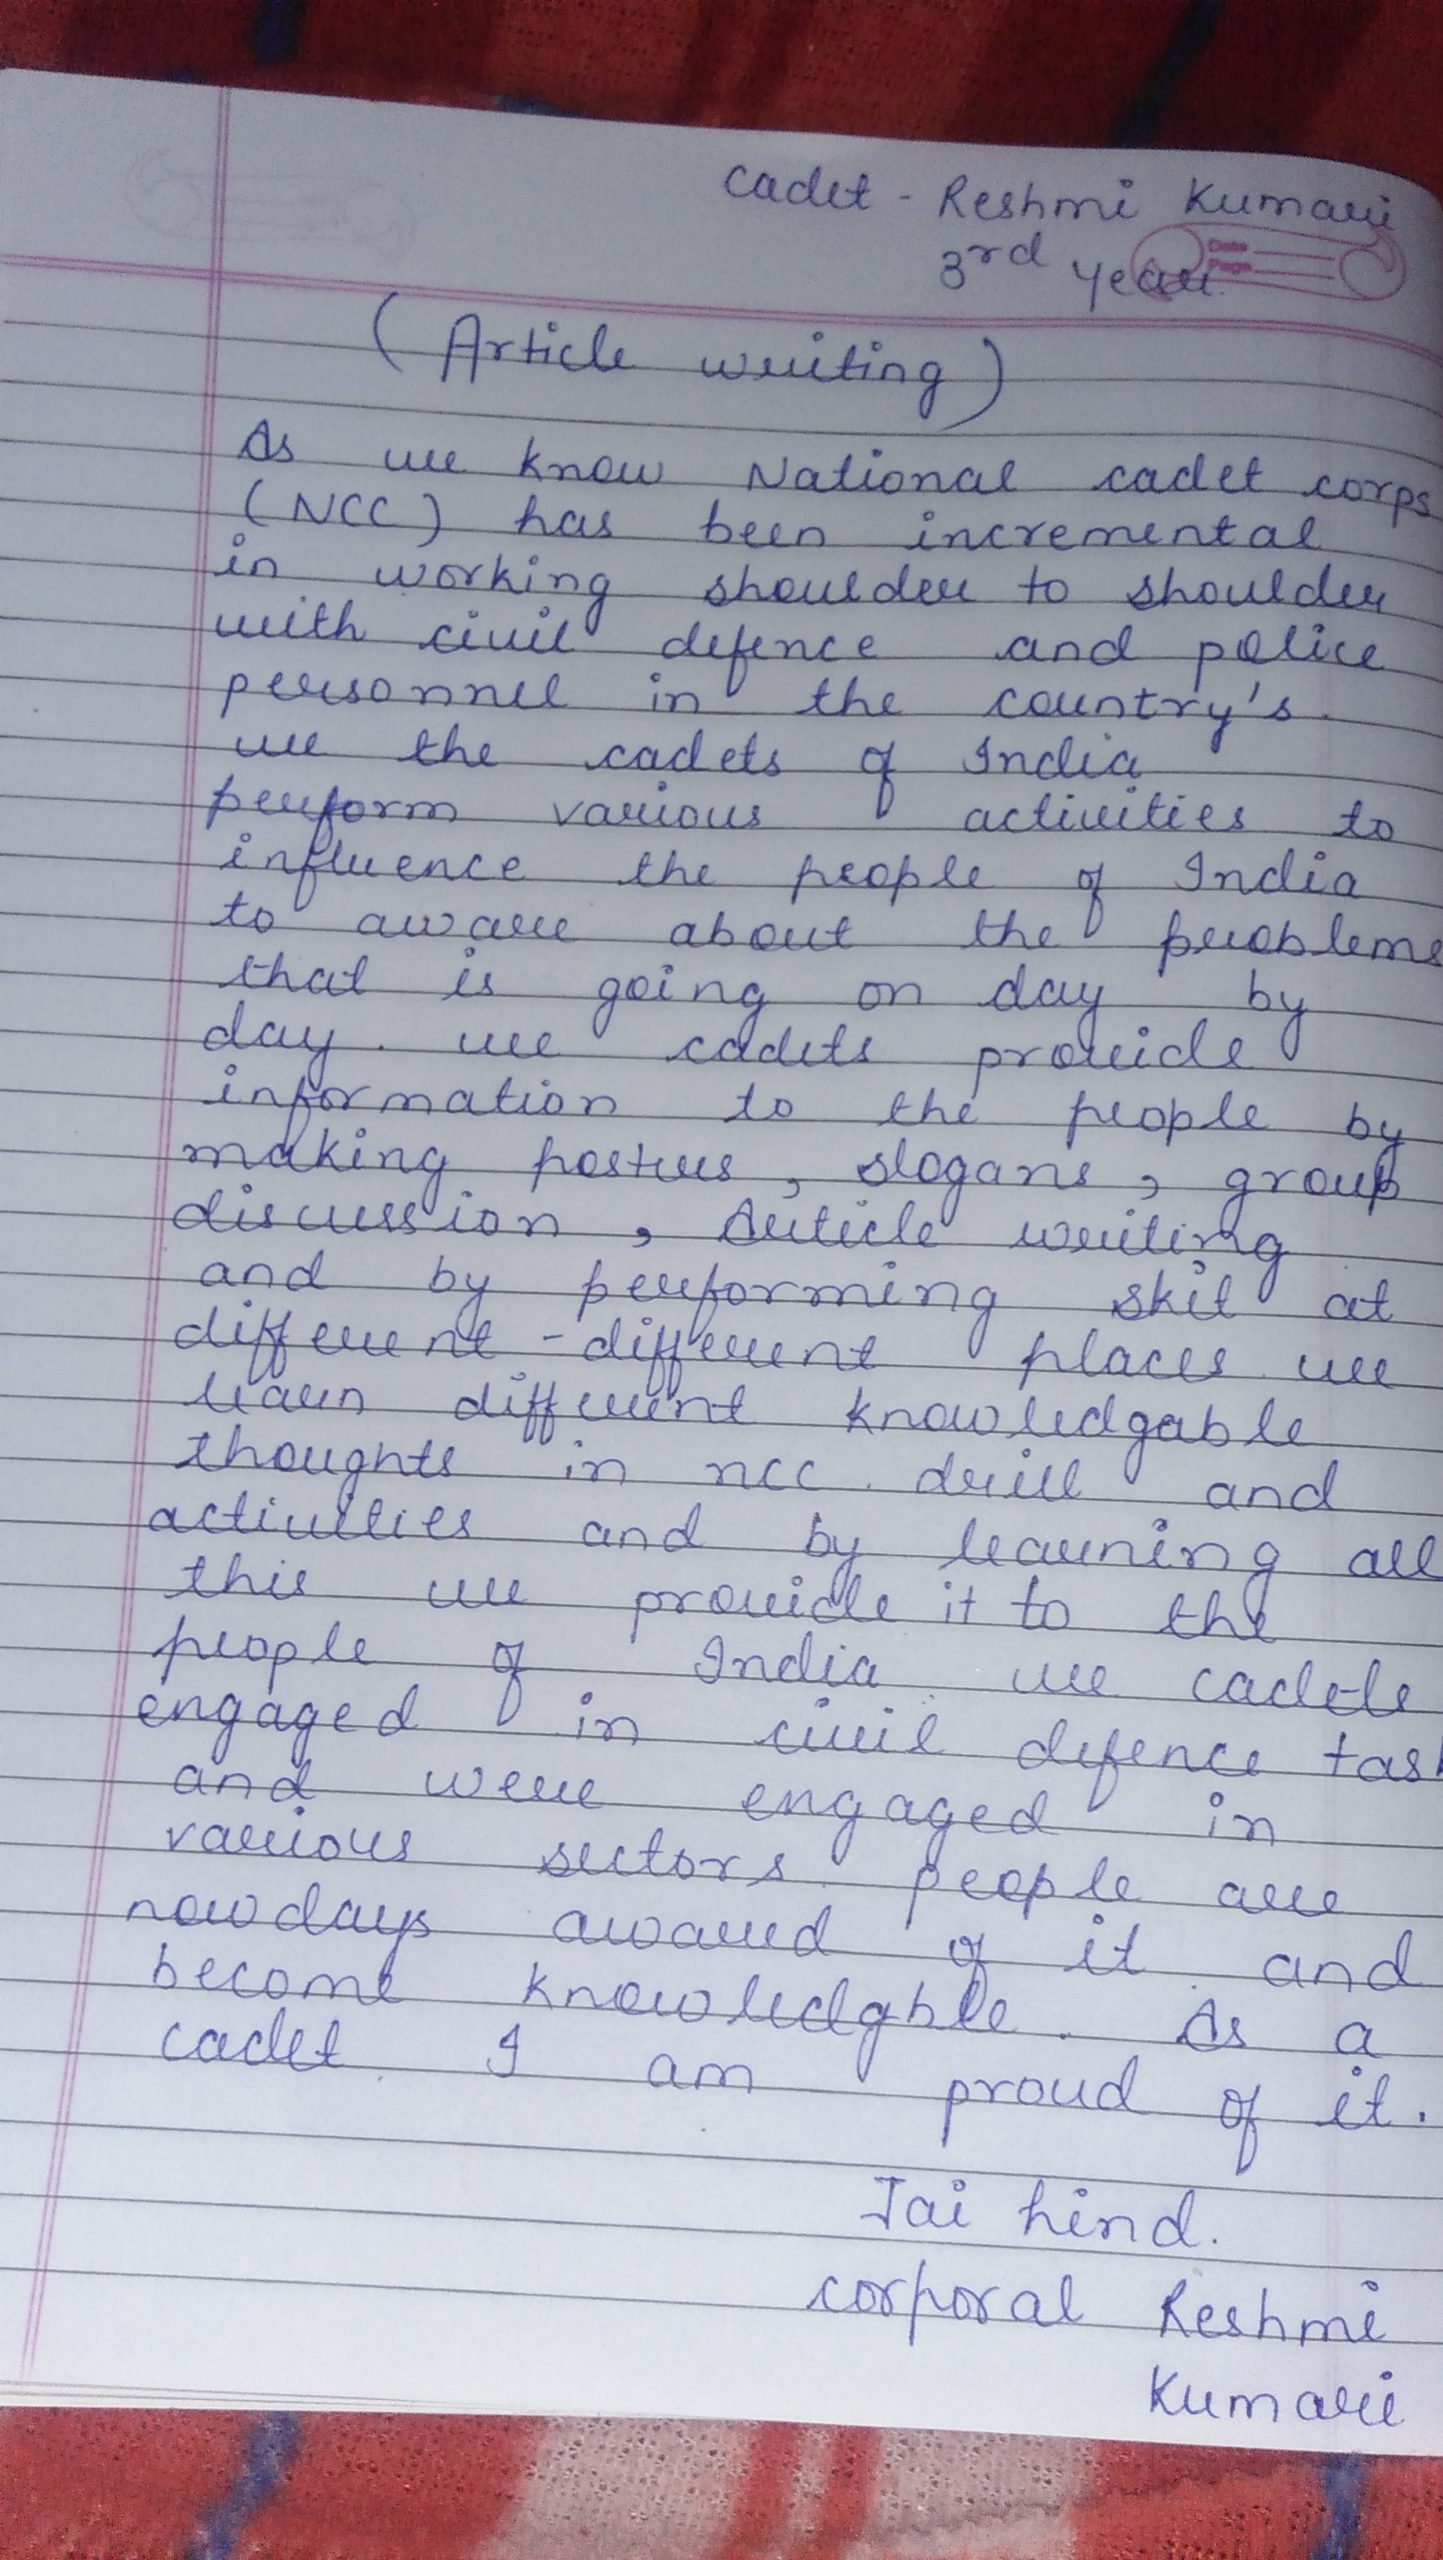 Cadet - Reshmi Kumari
Date
Page
3rd Year.
(Article writing)
As we know National cadet corps
(NCC) has been incremental
in working shoulder to shoulder
with civil defence and police
personnel in the country's.
we the cadets of India
perform various activities to
influence the people of India
to aware about the problems
that is going on day by
day. we cadets provide
information to the people by
making posters, slogans, group
discussion, Article writing
and by performing skit at
different-different places. we
learn different knowledgable
thoughts in ncc. drill and
activities and by learning all
this we provide it to the
people of India. we cadets
engaged in civil defence task
and were engaged in
various sectors. people are
nowdays awared of it. and
become knowledgble. As a
cadet I am proud of it.
Jai hind.
corporal Reshmi
Kumari